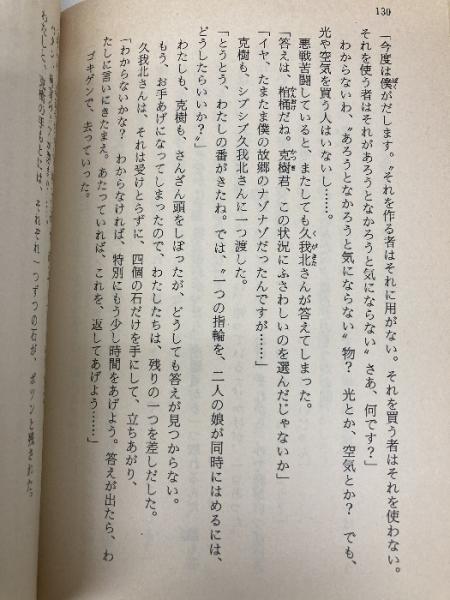 130
「今度は僕がだします。〝それを作る者はそれに用がない。それを買う者はそれを使わない。
それを使う者はそれがあろうとなかろうと気にならない〟さあ、何です？」
わからないわ、〝あろうとなかろうと気にならない〟物？　光とか、空気とか？　でも、
光や空気を買う人はいないし……。
悪戦苦闘していると、またしても久我北さんが答えてしまった。
「答えは、棺桶だね。克樹君、この状況にふさわしいのを選んだじゃないか」
「イヤ、たまたま僕の故郷のナゾナゾだったんですが……」
克樹も、シブシブ久我北さんに一つ渡した。
「とうとう、わたしの番がきたね。では、〝一つの指輪を、二人の娘が同時にはめるには、
どうしたらいいか？〟」
わたしも、克樹も、さんざん頭をしぼったが、どうしても答えが見つからない。
もう、お手あげになってしまったので、わたしたちは、残りの一つを差しだした。
久我北さんは、それは受けとらずに、四個の石だけを手にして、立ちあがり、
「わからないかな？　わからなければ、特別にもう少し時間をあげよう。答えが出たら、わ
たしに言いにきたまえ。あたっていれば、これを、返してあげよう……」
ゴキゲンで、去っていった。
それぞれ一つずつの石が、ポツンと残された。